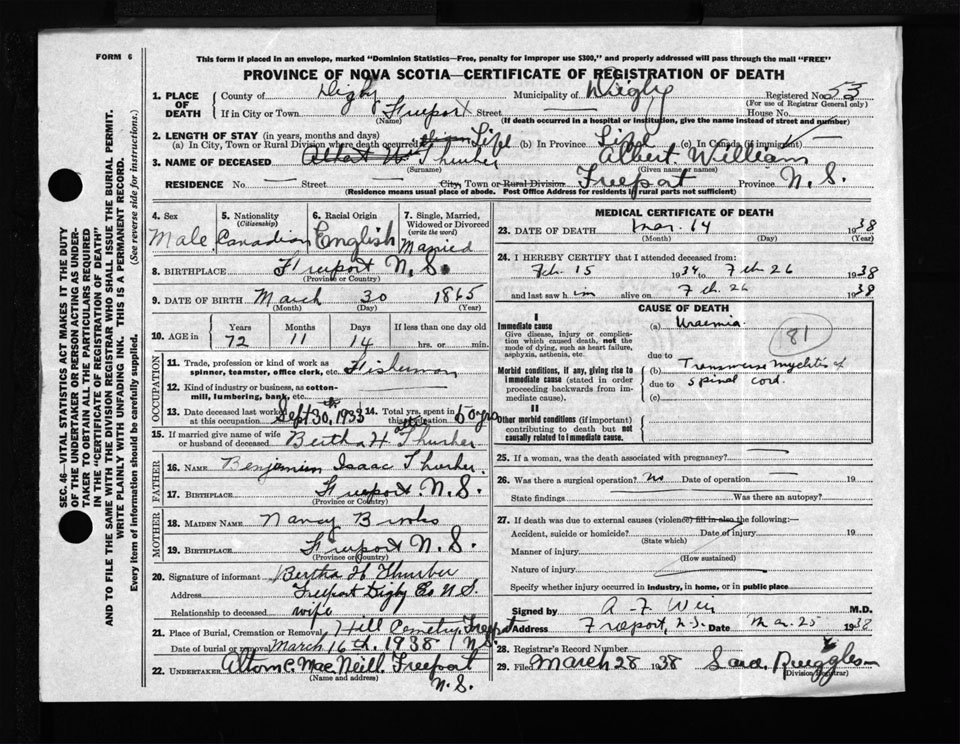 FORM 6
This form if placed in an envelope, marked "Dominion Statistics—Free, penalty for improper use $300," and properly addressed will pass through the mail "FREE"
PROVINCE OF NOVA SCOTIA—CERTIFICATE OF REGISTRATION OF DEATH
SEC. 46—VITAL STATISTICS ACT MAKES IT THE DUTY
OF THE UNDERTAKER OR PERSON ACTING AS UNDER-
TAKER TO OBTAIN ALL THE PARTICULARS REQUIRED
IN THE "CERTIFICATE OF REGISTRATION OF DEATH"
AND TO FILE THE SAME WITH THE DIVISION REGISTRAR WHO SHALL ISSUE THE BURIAL PERMIT.
WRITE PLAINLY WITH UNFADING INK. THIS IS A PERMANENT RECORD.
Every item of information should be carefully supplied. (See reverse side for instructions.)
1. PLACE OF DEATH County of Digby Municipality of Digby Registered No. 53
(For use of Registrar General only)
If in City or Town Freeport Street House No.
(Name) (If death occurred in a hospital or institution, give the name instead of street and number)
2. LENGTH OF STAY (in years, months and days)
(a) In City, Town or Rural Division where death occurred Life (b) In Province Life (c) In Canada (if immigrant)
3. NAME OF DECEASED Thurber Albert William
(Surname) (Given name or names)
RESIDENCE No. Street City, Town or Rural Division Freeport Province N.S.
(Residence means usual place of abode. Post Office Address for residents in rural parts not sufficient)
4. Sex 5. Nationality (Citizenship) 6. Racial Origin 7. Single, Married, Widowed or Divorced (write the word)
Male Canadian English Married
8. BIRTHPLACE Freeport N.S.
(Province or Country)
9. DATE OF BIRTH March 30 1865
(Month) (Day) (Year)
10. AGE in Years Months Days If less than one day old
72 11 14 hrs. or min.
OCCUPATION
11. Trade, profession or kind of work as spinner, teamster, office clerk, etc. Fisherman
12. Kind of industry or business, as cotton-mill, lumbering, bank, etc.
13. Date deceased last worked at this occupation Sept 30th, 1933 14. Total yrs. spent in this occupation 50 yrs
15. If married give name of wife or husband of deceased Bertha H Thurber
FATHER
16. NAME Benjamin Isaac Thurber
17. BIRTHPLACE Freeport N.S.
(Province or Country)
MOTHER
18. MAIDEN NAME Nancy
19. BIRTHPLACE Freeport N.S.
(Province or Country)
20. Signature of informant Bertha H Thurber
Address Freeport Digby Co N.S.
Relationship to deceased wife
21. Place of Burial, Cremation or Removal Hill Cemetry, Freeport
Date of burial or removal March 16th, 1938 N.S.
22. UNDERTAKER C. MacNeill Freeport
(Name and address) N.S.
MEDICAL CERTIFICATE OF DEATH
23. DATE OF DEATH Mar. 14 1938
(Month) (Day) (Year)
24. I HEREBY CERTIFY that I attended deceased from:
Feb. 15 1934 to Feb. 26 1938
and last saw him alive on Feb. 26 1938
CAUSE OF DEATH
I
Immediate cause (a) Uraemia 181
Give disease, injury or complica-
tion which caused death, not the
mode of dying, such as heart failure,
asphyxia, asthenia, etc.
due to
Morbid conditions, if any, giving rise to (b) Transverse Myelitis of
immediate cause (stated in order due to spinal cord.
proceeding backwards from im-
mediate cause). (c)
II
Other morbid conditions (if important)
contributing to death but not
causally related to immediate cause.
25. If a woman, was the death associated with pregnancy?
26. Was there a surgical operation? No Date of operation 19
State findings Was there an autopsy?
27. If death was due to external causes (violence) fill in also the following:—
Accident, suicide or homicide? Date of injury 19
(State which)
Manner of injury
(How sustained)
Nature of injury
Specify whether injury occurred in industry, in home, or in public place
Signed by A-F Weir M.D.
Address Freeport, N.S. Date Mar. 25 1938
28. Registrar's Record Number
29. Filed March 28 1938 Ruggles
(Division Registrar)